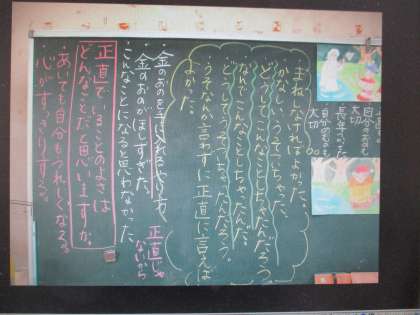 自分のおの
大切
長年つかった
大切
まねしなければよかった。
かなしい。うそついちゃった。
どうしてこんなことしちゃったんだろう。
なんでこんなことしちゃったんだ。
どうしてうそついちゃったんだろう。
うそなんか言わずに正直に言えば
よかった。
金のおのを手に入れるやり方。
・金のおのがほしすぎた。
こんなことになると思わなかった。
正直じゃ
ないから
正直でいることのよさは
どんなことだと思いますか。
・あいても自分もうれしくなる。
・心がすっきりする。